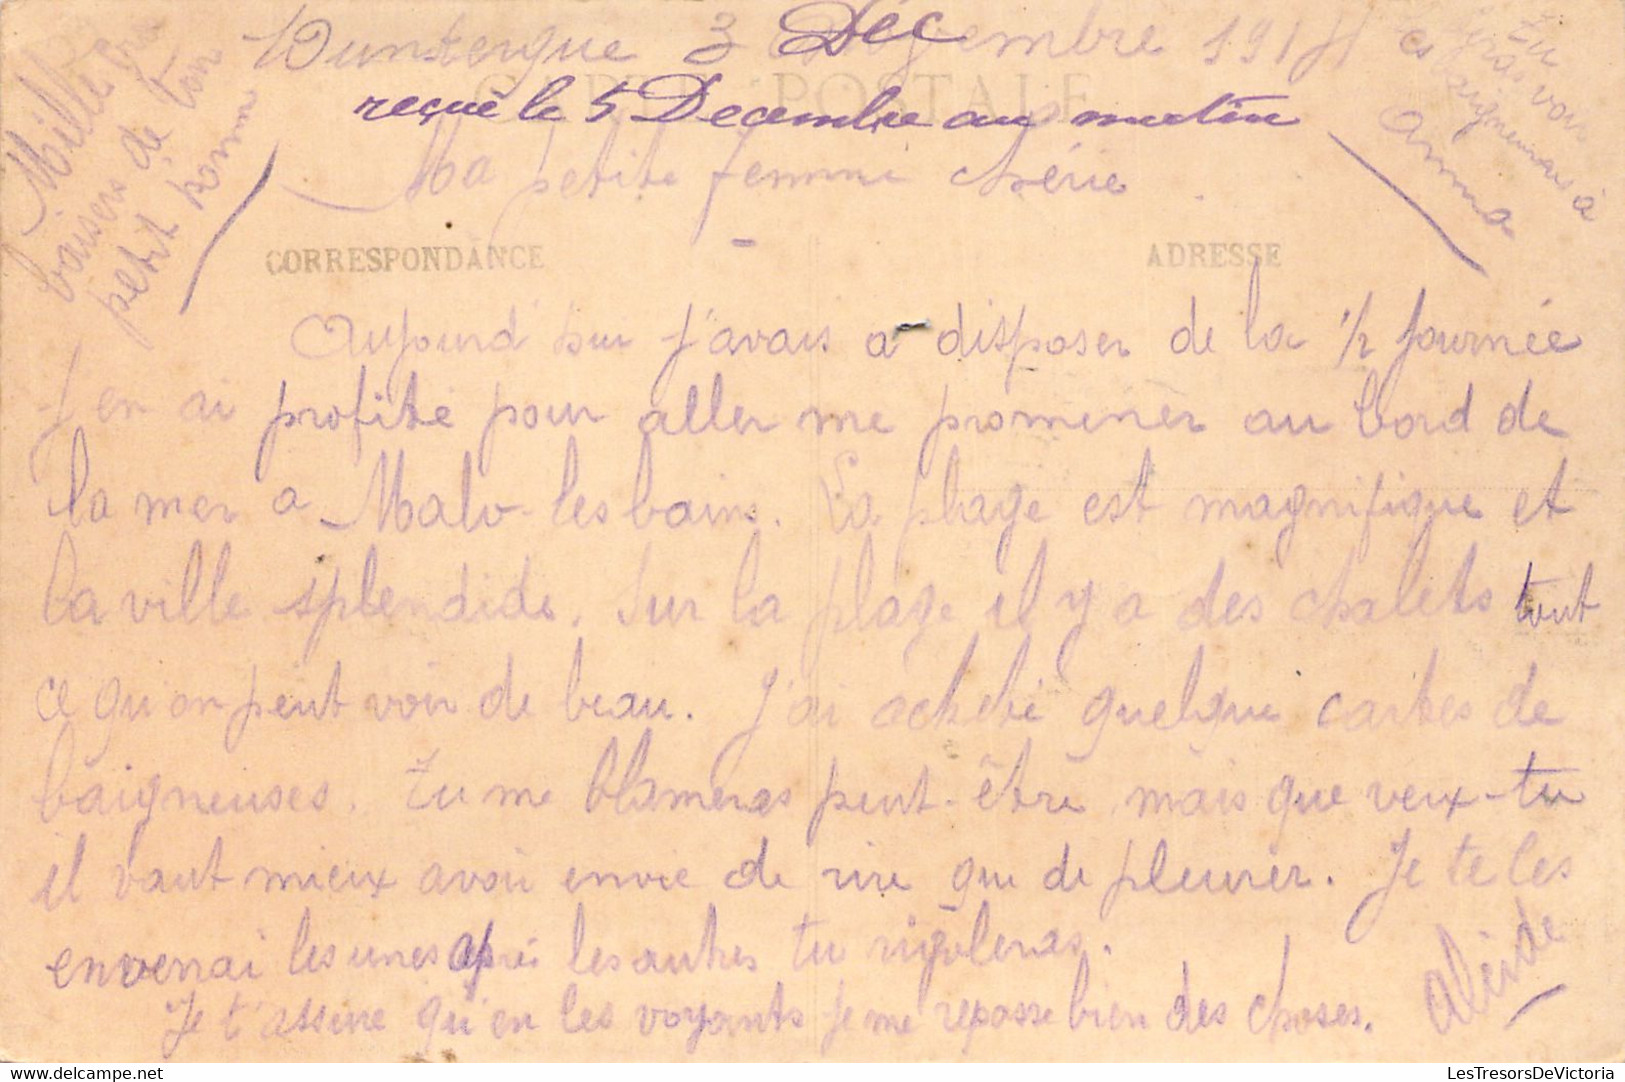 Mille gros
baisers de ton
petit homme
Dunkerque 3 Déc 1914
CARTE POSTALE
reçue le 5 Decembre au matin
Ma petite femme chérie
tu
feras voir
ces baigneuses à
Anna
CORRESPONDANCE
ADRESSE
Aujourd'hui j'avais a disposer de la 1/2 journée
j'en ai profité pour aller me promener au bord de
la mer a Malo-les bains. La plage est magnifique et
la ville splendide. Sur la plage il y a des chalets tout
ce qu'on peut voir de beau. J'ai acheté quelque cartes de
baigneuses. Tu me blameras peut-être mais que veux-tu
il vaut mieux avoir envie de rire que de pleurer. Je te les
enverrai les unes après les autres tu rigoleras.
Je t'assure qu'en les voyants je me repasse bien des choses.
Alcide
LesTresorsDeVictoria